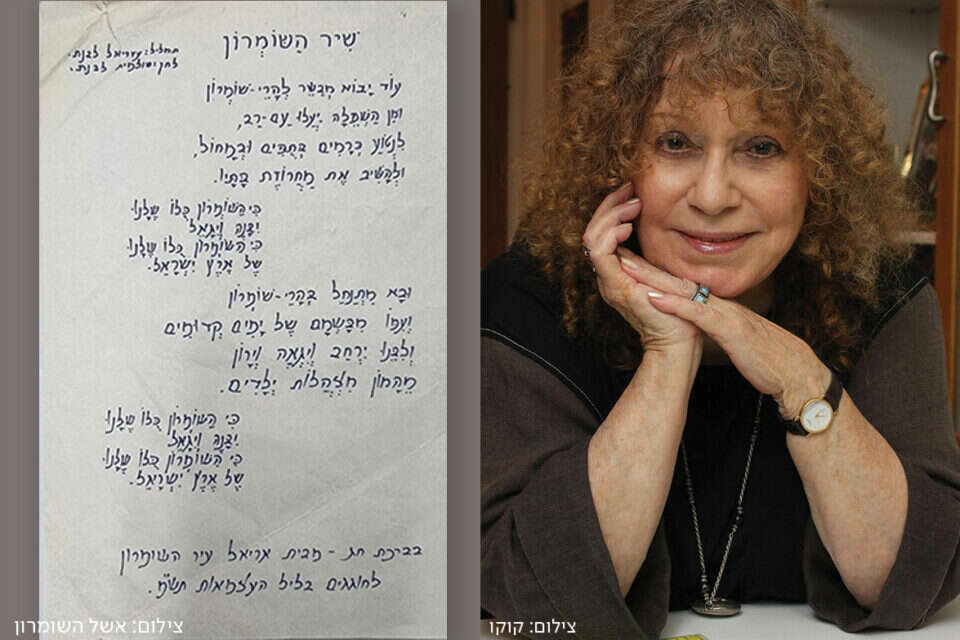 שיר השומרון
תמליל: עזריאל לבנת.
לחן: שולמית לבנת.
עוד יבוא מבשר להרי-שומרון
ומן השפלה יעלו עם-רב,
לנטוע כרמים בתפים ובמחול,
ולהשיב את מחרוזת בתיו.
כי השומרון כלו שלנו
יבנה ויגאל
כי השומרון כלו שלנו
של ארץ ישראל.
ובא מתנחל בהרי-שומרון
ועמו מבשמם של ימים קדומים
ולבנו ירחב ויגאה וירון
מהמון מצהלות ילדים.
כי השומרון כלו שלנו
יבנה ויגאל
כי השומרון כלו שלנו
של ארץ ישראל.
בברכת חג - מבית אריאל עיר השומרון
לחוגגים בליל העצמאות
צילום: אשל השומרון
צילום: קוקו